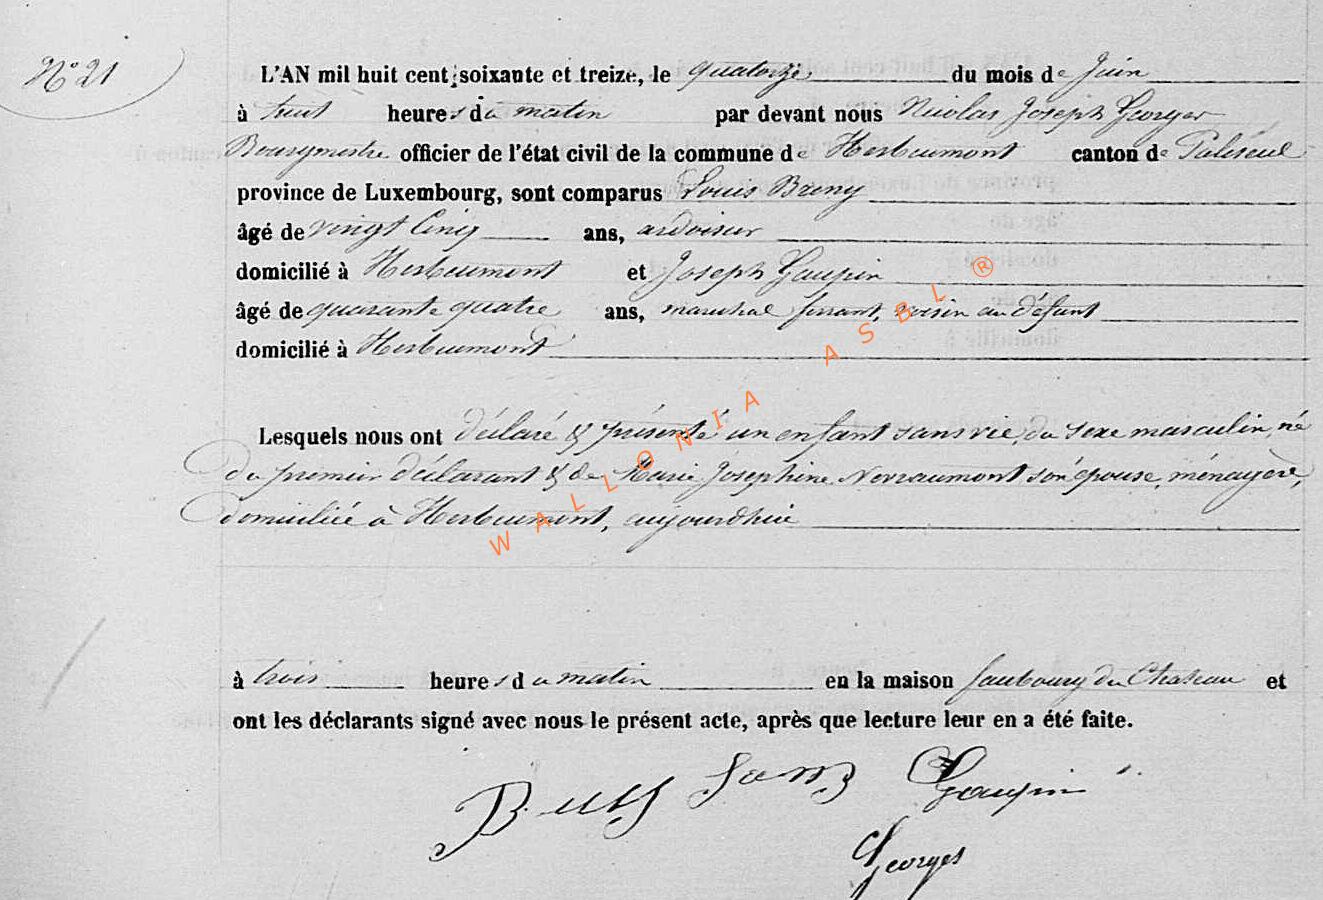 N° 21
L'AN mil huit cent soixante et treize, le quatorze du mois de Juin
à huit heures du matin par devant nous Nicolas Joseph Georges
Bourgmestre officier de l'état civil de la commune de Herbeumont canton de Paliseul
province de Luxembourg, sont comparus Louis Breny
âgé de vingt cinq ans, ardoisier
domicilié à Herbeumont et Joseph Gaupin
âgé de quarante quatre ans, maréchal ferrant, voisin au défunt
domicilié à Herbeumont
Lesquels nous ont déclaré & présenté un enfant sans vie, du sexe masculin, né
du premier déclarant & de Marie Josephine Nevraumont son épouse, ménagère,
domiciliée à Herbeumont, aujourdhui
à trois heures du matin en la maison faubourg du Chateau et
ont les déclarants signé avec nous le présent acte, après que lecture leur en a été faite.
Gaupin
Georges
WALLONIA ASBL ®